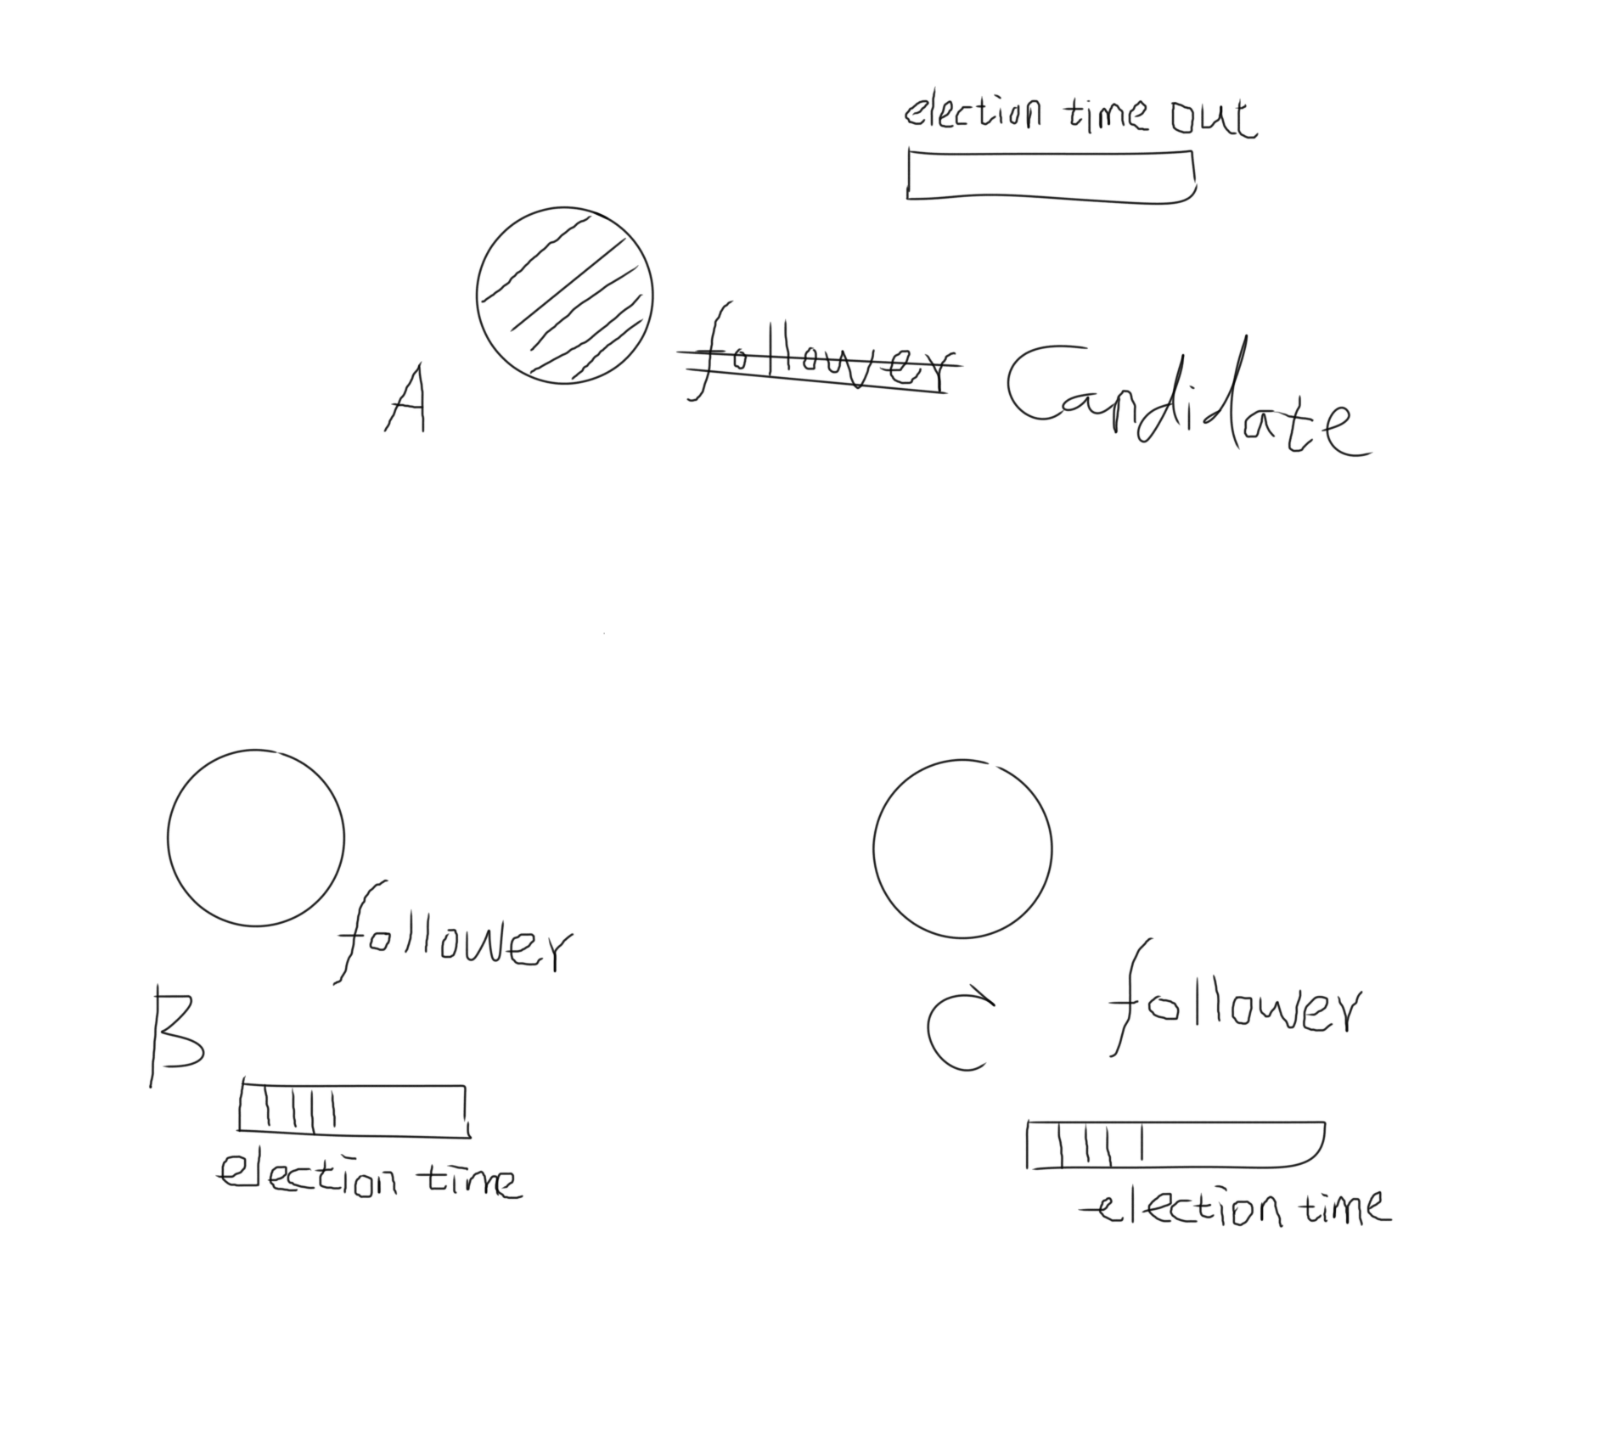 election time out
A
follower Candidate
follower
B
election time
C
follower
election time